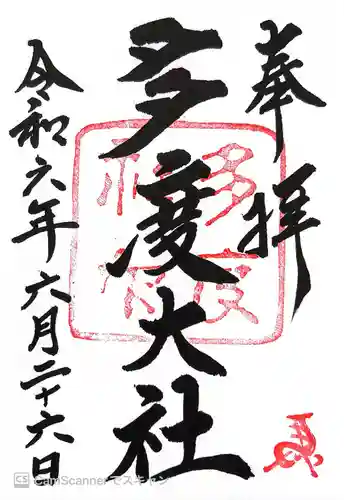 奉拝
多度大社
令和六年六月二十六日
CS CamScanner でスキャン